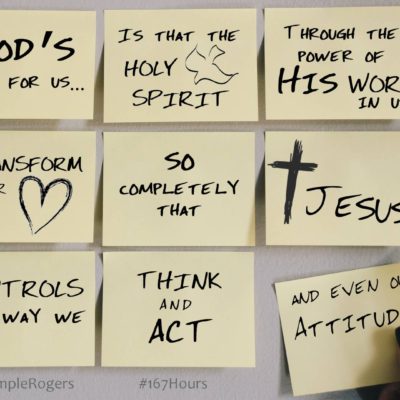 OD'S
FOR US...
IS THAT THE
HOLY
SPIRIT
THROUGH THE
POWER OF
HIS WOR
IN U
NSFORM
R
SO
COMPLETELY
THAT
JESUS
TROLS
WAY WE
THINK
AND
ACT
AND EVEN OU
ATTITUD
mpleRogers
#167Hours